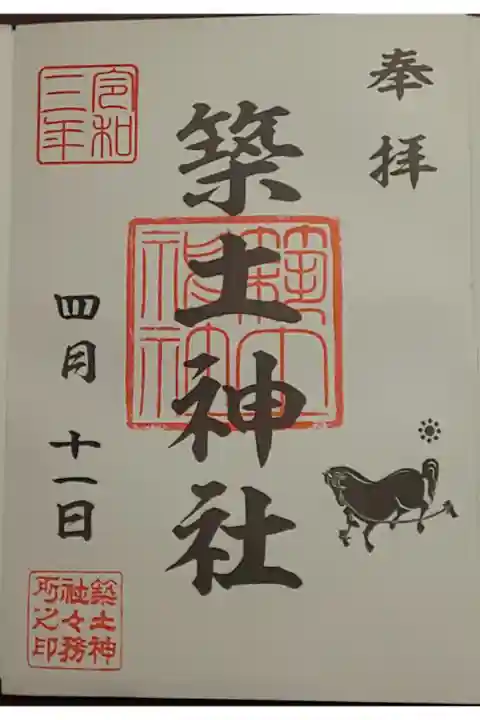 奉拝
築土神社
築土神社
令和三年
四月十一日
築土神社々務所之印